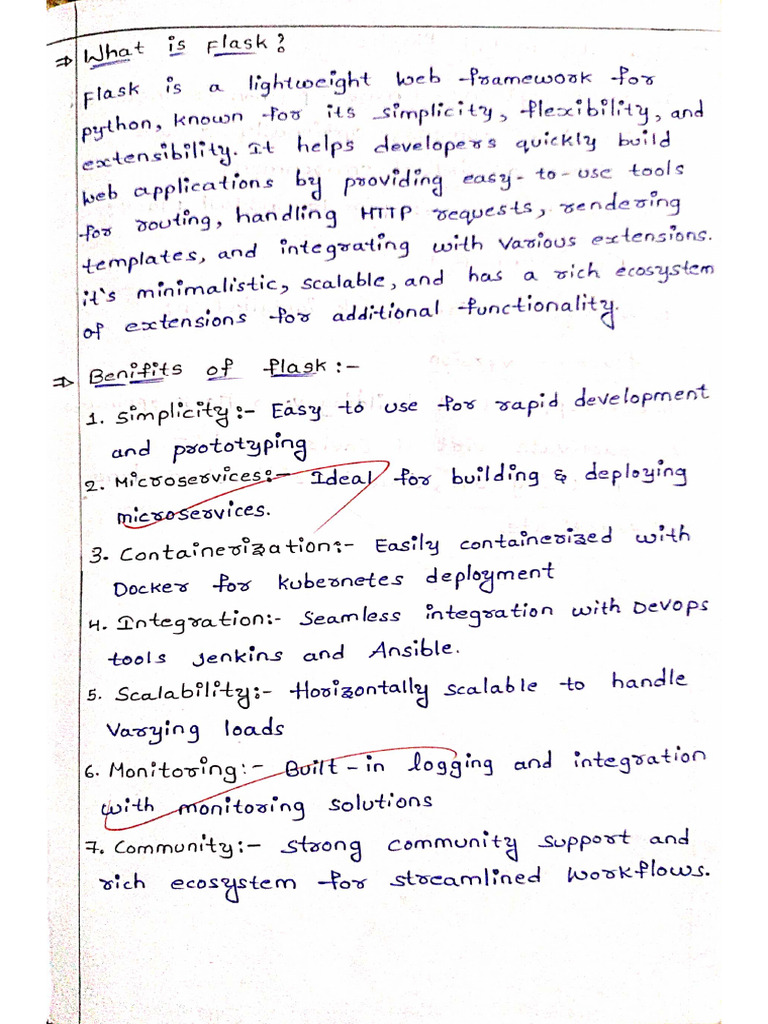 ⇒ What is Flask?
Flask is a lightweight web framework for
python, known for its simplicity, flexibility, and
extensibility. It helps developers quickly build
web applications by providing easy-to-use tools
for routing, handling HTTP requests, rendering
templates, and integrating with various extensions.
it's minimalistic, scalable, and has a rich ecosystem
of extensions for additional functionality.
⇒ Benifits of flask:-
1. Simplicity:- Easy to use for rapid development
and prototyping
2. Microservices:- Ideal for building & deploying
microservices.
3. Containerization:- Easily containerized with
Docker for kubernetes deployment
4. Integration:- Seamless integration with Devops
tools Jenkins and Ansible.
5. Scalability:- Horizontally scalable to handle
Varying loads
6. Monitoring:- Built-in logging and integration
with monitoring solutions
7. Community:- Strong community support and
rich ecosystem for streamlined workflows.